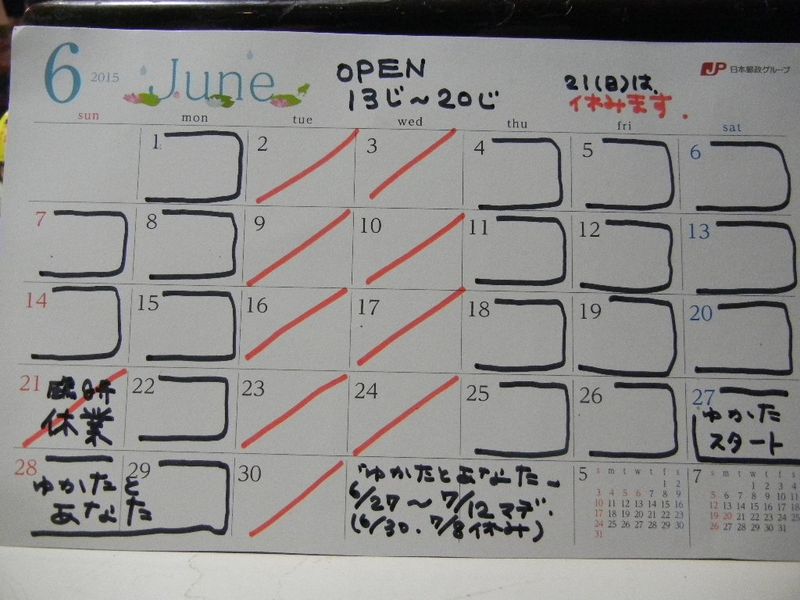 6 2015 June
OPEN
13じ~20じ
21(日)は、
休みます.
JP 日本郵政グループ
sun mon tue wed thu fri sat
1 2 3 4 5 6
7 8 9 10 11 12 13
14 15 16 17 18 19 20
21 22 23 24 25 26 27
臨時
休業
ゆかた
スタート
28 29 30
ゆかたと
あなた
「ゆかたとあなた」
6/27~7/12マデ.
(6/30.7/8休み)
5
s m t w t f s
1 2
3 4 5 6 7 8 9
10 11 12 13 14 15 16
17 18 19 20 21 22 23
24 25 26 27 28 29 30
31
7
s m t w t f s
1 2 3 4
5 6 7 8 9 10 11
12 13 14 15 16 17 18
19 20 21 22 23 24 25
26 27 28 29 30 31